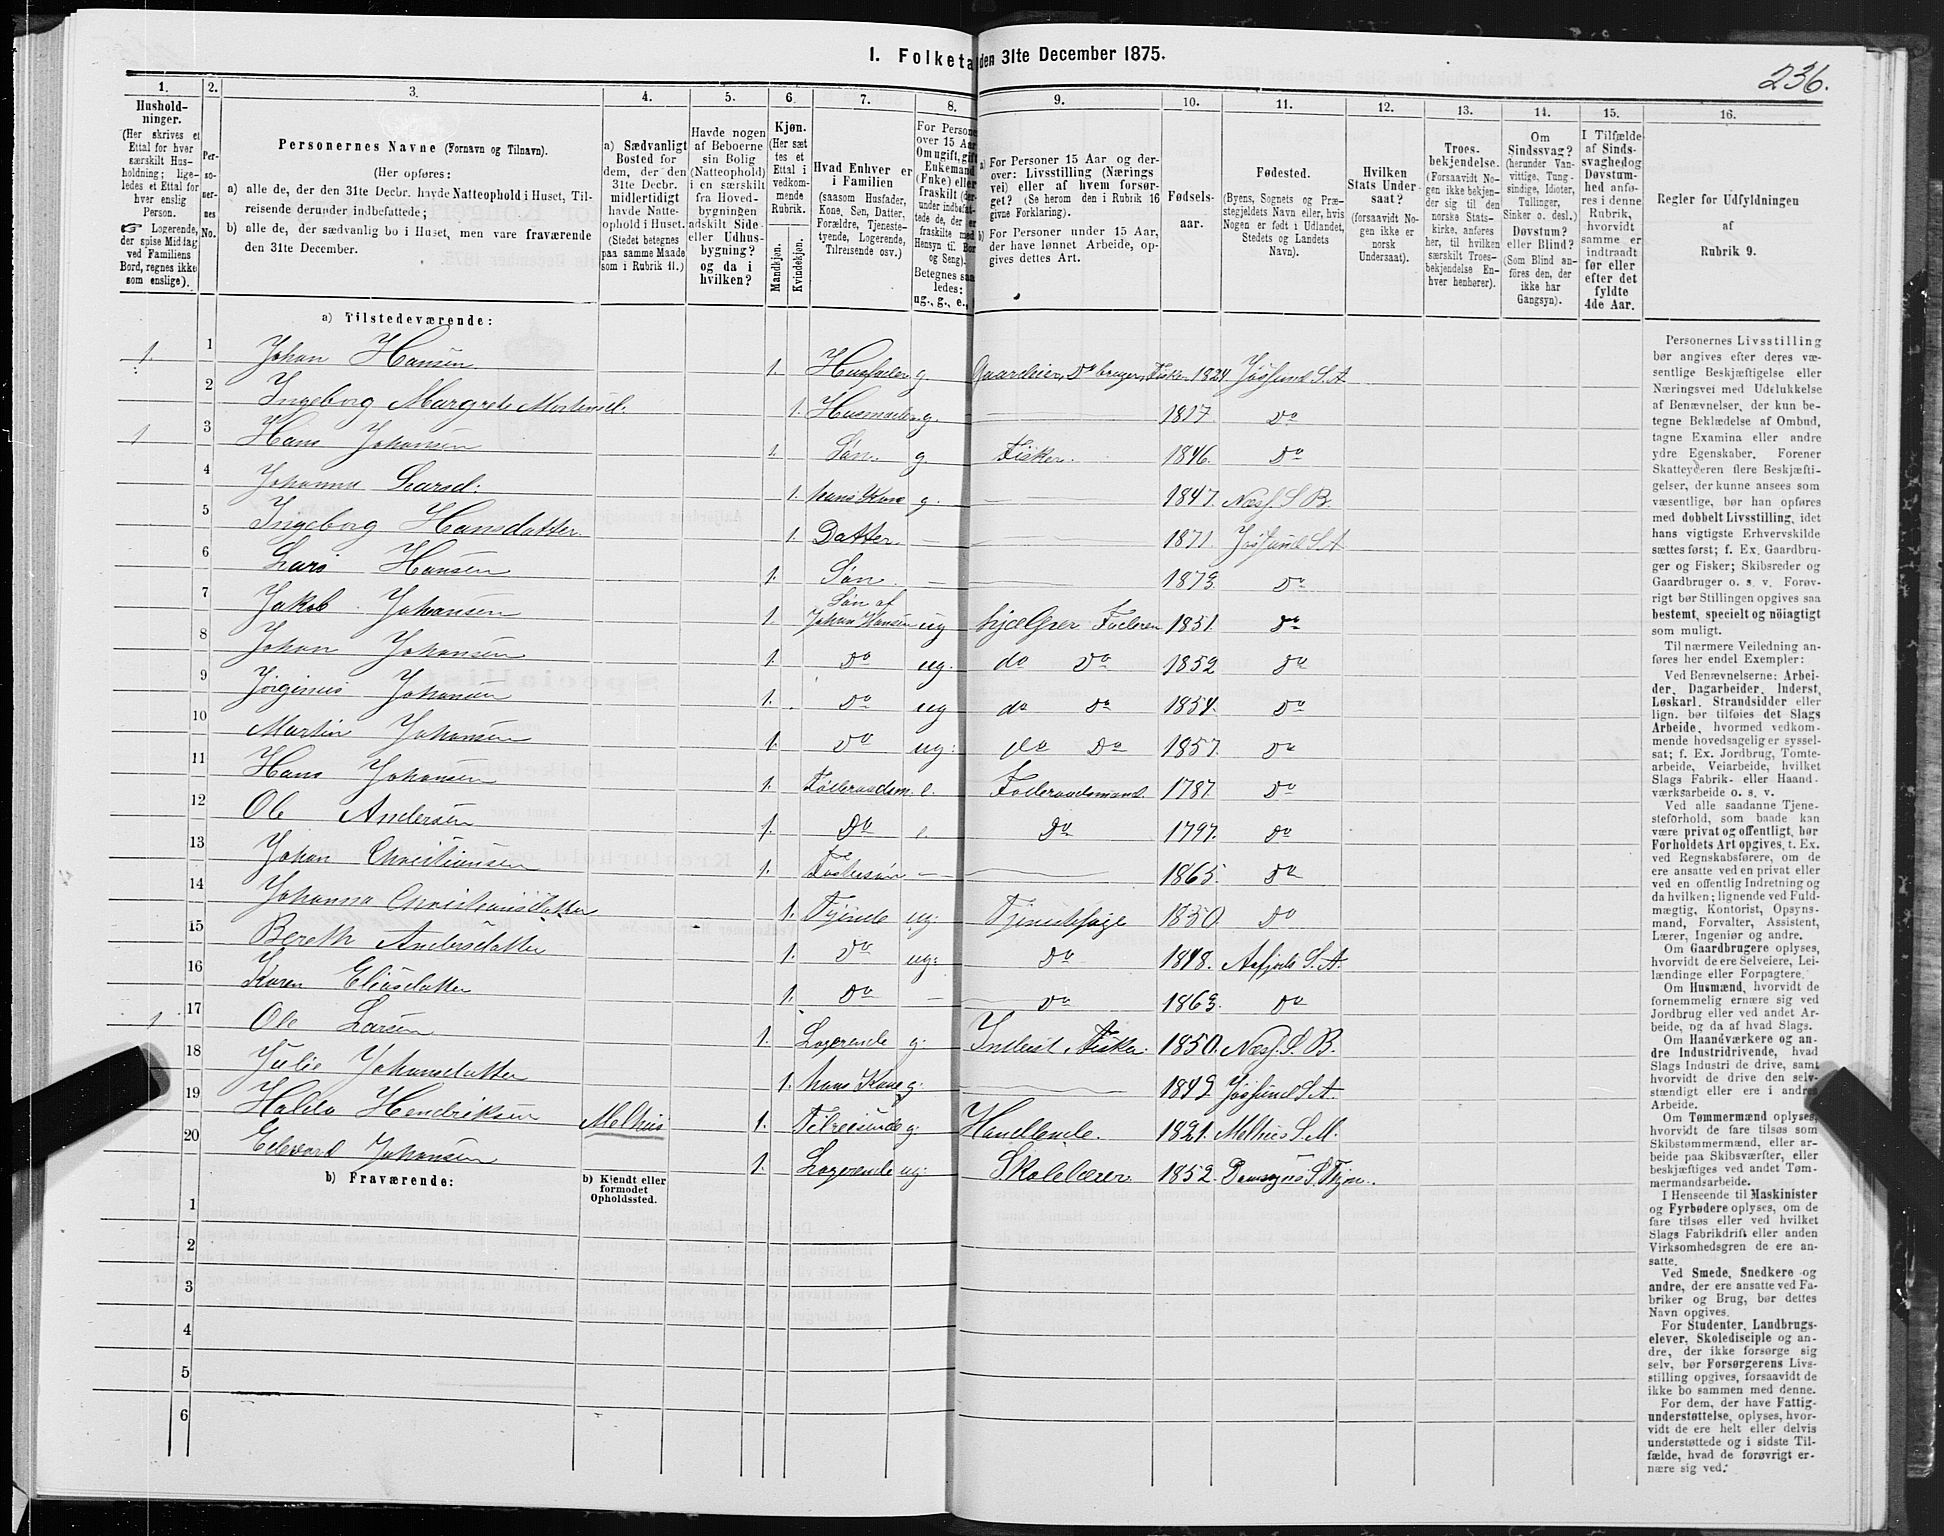 I. Folketa den 31te December 1875.
236.
1.
2.
3.
4.
5.
6.
7.
8.
9.
10.
11.
12.
13.
14.
15.
16.
Hushold-
ninger.
(Her skrives et
Ettal for hver
særskilt Hus-
holdning; lige-
ledes et Ettal for
hver enslig
Person.
☞ Logerende,
der spise Middag
ved Familiens
Bord, regnes ikke
som enslige).
Per-
so-
ner-
nes
No.
Personernes Navne (Fornavn og Tilnavn).
(Her opføres:
a) alle de, der den 31te Decbr. havde Natteophold i Huset, Til-
reisende derunder indbefattede;
b) alle de, der sædvanlig bo i Huset, men vare fraværende
den 31te December.
a) Sædvanligt
Bosted for
dem, der den
31te Decbr.
midlertidigt
havde Natte-
ophold i Huset.
(Stedet betegnes
paa samme Maade
som i Rubrik 11.)
Havde nogen
af Beboerne
sin Bolig
(Natteophold)
i en særskilt
fra Hoved-
bygningen
adskilt Side-
eller Udhus-
bygning?
og da i
hvilken?
Kjøn.
(Her sæt
tes et
Ettal i
vedkom-
mende
Rubrik.
Mandkjøn.
Kvindekjøn.
Hvad Enhver er
i Familien
(saasom Husfader,
Kone, Søn, Datter,
Forældre, Tjeneste-
tyende, Logerende,
Tilreisende osv.)
For Persone
over 15 Aar
Om ugift, gift
Enkemand
(Enke) eller
fraskilt (der-
under indbefat-
tede de, der er
fraskilte med
Hensyn til Bor
og Seng).
Betegnes saa
ledes:
ug., g., e.,
a) For Personer 15 Aar og der-
over: Livsstilling (Nærings
vei) eller af hvem forsør-
get? (Se herom den i Rubrik 16
givne Forklaring).
b) For Personer under 15 Aar,
der have lønnet Arbeide, op-
gives dettes Art.
Fødsels-
aar.
Fødested.
(Byens, Sognets og Præ-
stegjeldets Navn eller, hvis
Nogen er født i Udlandet,
Stedets og Landets
Navn).
Hvilken
Stats Under-
saat?
(forsaavidt No-
gen ikke er
norsk
Undersaat).
Troes-
bekjendelse.
(Forsaavidt No-
gen ikke bekjen-
der sig til den
norske Stats-
kirke, anføres
her, til hvilken
særskilt Troes-
bekjendelse En-
hver henhører).
Om
Sindssvag?
(herunder Van-
vittige, Tung-
sindige, Idioter,
Tullinger,
Sinker o. desl.)
Døvstum?
eller Blind?
(Som Blind an-
føres den, der
ikke har
Gangsyn).
I Tilfælde
af Sinds-
svaghed og
Døvstum-
hed anfø-
res i denne
Rubrik,
hvorvidt
samme er
indtraadt
før eller
efter det
fyldte
4de Aar.
Regler for Udfyldningen
af
Rubrik 9.
a) Tilstedeværende:
1. 1 Johan Hansen 1. Husfader g. Gaardeier, Do bruger, Fisker 1824 Jøssund S. A
2 Ingeborg Margrete Mortensd. 1. Husmoder g. 1817. Do
1 3 Hans Johansen 1. Søn. g. Fisker. 1846. Do
4 Johanna Larsd. 1. hans Kone g. 1847. Næsf. S. B.
5 Ingeborg Hansdatter 1. Datter. — 1871. Jøssund S. A
6 Lars Hansen 1. Søn. — 1873. Do
7 Jakob Johansen 1. Søn af Johan Hansen ug hjælper Faderen 1851. Do
8 Johan Johansen 1. Do ug. do Do 1852 Do
9 Jørginus Johansen 1. Do ug do Do 1854. Do
10 Martin Johansen 1. Do ug: do Do 1857. Do
11 Hans Johansen 1. Føderaadsm. e. Føderaadsmand. 1787. Do
12 Ole Andersen 1. Do e. Do 1797. Do
13 Johan Christiansen 1. Fostersøn — 1865. Do
14 Johanna Christiansdatter 1. Tjende ug: Tjenestepige 1850. Do
15 Bereth Andersdatter 1. Do ug: Do 1848. Aafjord S. A.
16 Karen Eliasdatter 1. Do — Do 1863. Do
1 17 Ole Larsen 1. Logerende g: Inderst, Fisker. 1850. Næsf. S. B.
18 Julie Johansdatter 1. hans Kone g: 1849 Jøssund S. A.
19 Haldo Hendriksen Melhus 1. Tilreisende g: Handlende. 1821. Melhus S. M.
20 Edevard Johansen 1. Logerende ug: Skolelærer 1852.
b) Fraværende:
b) Kjendt eller
formodet
Opholdssted.
1
2
3
4
5
6
Personernes Livsstilling
bør angives efter deres væ-
sentlige Beskjæftigelse eller
Næringsvei med Udelukkelse
af Benævnelser, der kun be-
tegne Beklædelse af Ombud,
tagne Examina eller andre
ydre Egenskaber. Forener
Skatteyderen flere Beskjæfti-
gelser, der kunne ansees som
væsentlige, bør han opføres
med dobbelt Livsstilling, idet
hans vigtigste Erhvervskilde
sættes først; f. Ex. Gaardbru-
ger og Fisker; Skibsreder og
Gaardbruger o. s. v. Forøv-
rigt bør Stillingen opgives saa
bestemt, specielt og nöiagtigt
som muligt.
Til nærmere Veiledning an-
føres her endel Exempler:
Ved Benævnelserne: Arbei-
der, Dagarbeider, Inderst,
Løskarl, Strandsidder eller
lign. bør tilføies det Slags
Arbeide, hvormed vedkom-
mende hovedsagelig er syssel-
sat; f. Ex. Jordbrug, Tomte-
arbeide, Veiarbeide, hvilket
Slags Fabrik- eller Haand-
værksarbeide o. s. v.
Ved alle saadanne Tjene-
steforhold, som baade kan
være privat og offentligt, bør
Forholdets Art opgives, t. Ex.
ved Regnskabsførere, om de
ere ansatte ved en privat eller
ved en offentlig Indretning og
da hvilken; lignende ved Fuld-
mægtig, Kontorist, Opsyns-
mand, Forvalter, Assistent,
Lærer, Ingeniør og andre.
Om Gaardbrugere oplyses,
hvorvidt de ere Selveiere, Lei-
lændinge eller Forpagtere.
Om Husmænd, hvorvidt de
fornemmelig ernære sig ved
Jordbrug eller ved andet Ar-
beide, og da af hvad Slags.
Om Haandværkere og an-
dre Industridrivende, hvad
Slags Industri de drive, samt
hvorvidt de drive den selv-
stændigt eller ere i andres
Arbeide.
Om Tømmermænd oplyses,
hvorvidt de fare tilsøs som
Skibstømmermænd, eller ar-
beide paa Skibsværfter, eller
beskjæftiges ved andet Tøm-
mermandsarbeide.
I Henseende til Maskinister
og Fyrbødere oplyses, om de
fare tilsøs eller ved hvilket
Slags Fabrikdrift eller anden
Virksomhedsgren de ere an-
satte.
Ved Smede, Snedkere og
andre, der ere ansatte ved Fa-
briker og Brug, bør dettes
Navn opgives.
For Studenter, Landbrugs-
elever, Skoledisciple og an-
dre, der ikke forsørge sig
selv, bør Forsørgerens Livs-
stilling opgives, forsaavidt de
ikke bo sammen med denne.
For dem, der have Fattig-
understøttelse, oplyses, hvor-
vidt de ere helt eller delvis
understøttede og i sidste Til-
fælde, hvad de forøvrigt er-
nære sig ved.